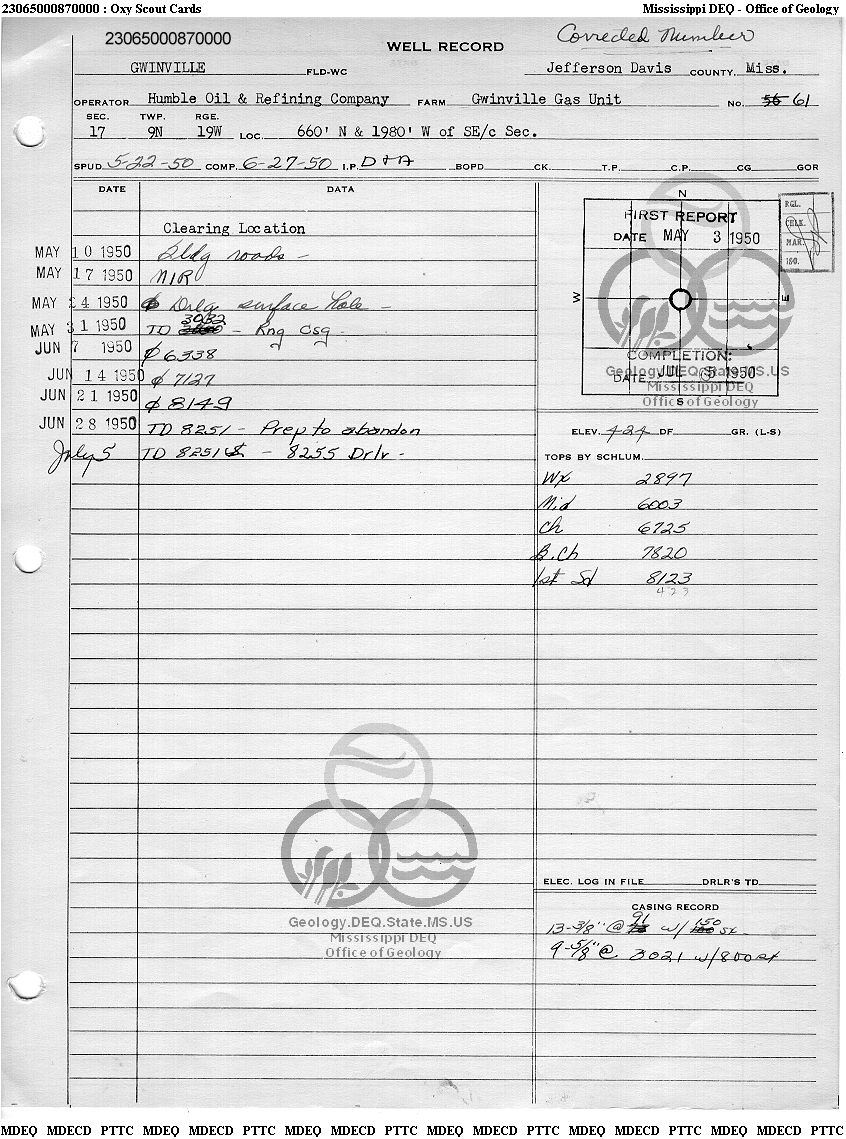 23065000870000 : Oxy Scout Cards Mississippi DEQ - Office of Geology
23065000870000 Corrected Number
WELL RECORD
GWINVILLE FLD-WC Jefferson Davis COUNTY Miss.
OPERATOR Humble Oil & Refining Company FARM Gwinville Gas Unit NO. 56 61
SEC. TWP. RGE.
17 9N 19W LOC. 660' N & 1980' W of SE/c Sec.
SPUD. 5-22-50 COMP. 6-27-50 I.P. D+A BOPD CK. T.P. C.P. CG GOR
DATE DATA
Clearing Location
MAY 10 1950 Bldg roads -
MAY 17 1950 NIR
MAY 24 1950 Drlg surface hole -
MAY 31 1950 TD 3032 - Rng Csg
JUN 7 1950 6338
JUN 14 1950 7127
JUN 21 1950 8149
JUN 28 1950 TD 8251 - Prep to abandon
July 5 TD 8251 S - 8255 Drlr -
N
FIRST REPORT
DATE MAY 3 1950
W E
COMPLETION:
DATE JUL 5 1950
S
RGL.
CHLK.
MAR.
ISO.
Geology.DEQ.State.MS.US
Mississippi DEQ
Office of Geology
ELEV. 424 DF. GR. (L-S)
TOPS BY SCHLUM.
Wx 2897
Mid 6003
Ch 6725
B.Ch 7820
1st Sd 8123
423
ELEC. LOG IN FILE DRLR'S TD
CASING RECORD
13-3/8" @ 91 w/ 150 sx
9-5/8" @ 3021 w/800 sx
Geology.DEQ.State.MS.US
Mississippi DEQ
Office of Geology
MDEQ MDECD PTTC MDEQ MDECD PTTC MDEQ MDECD PTTC MDEQ MDECD PTTC MDEQ MDECD PTTC MDEQ MDECD PTTC